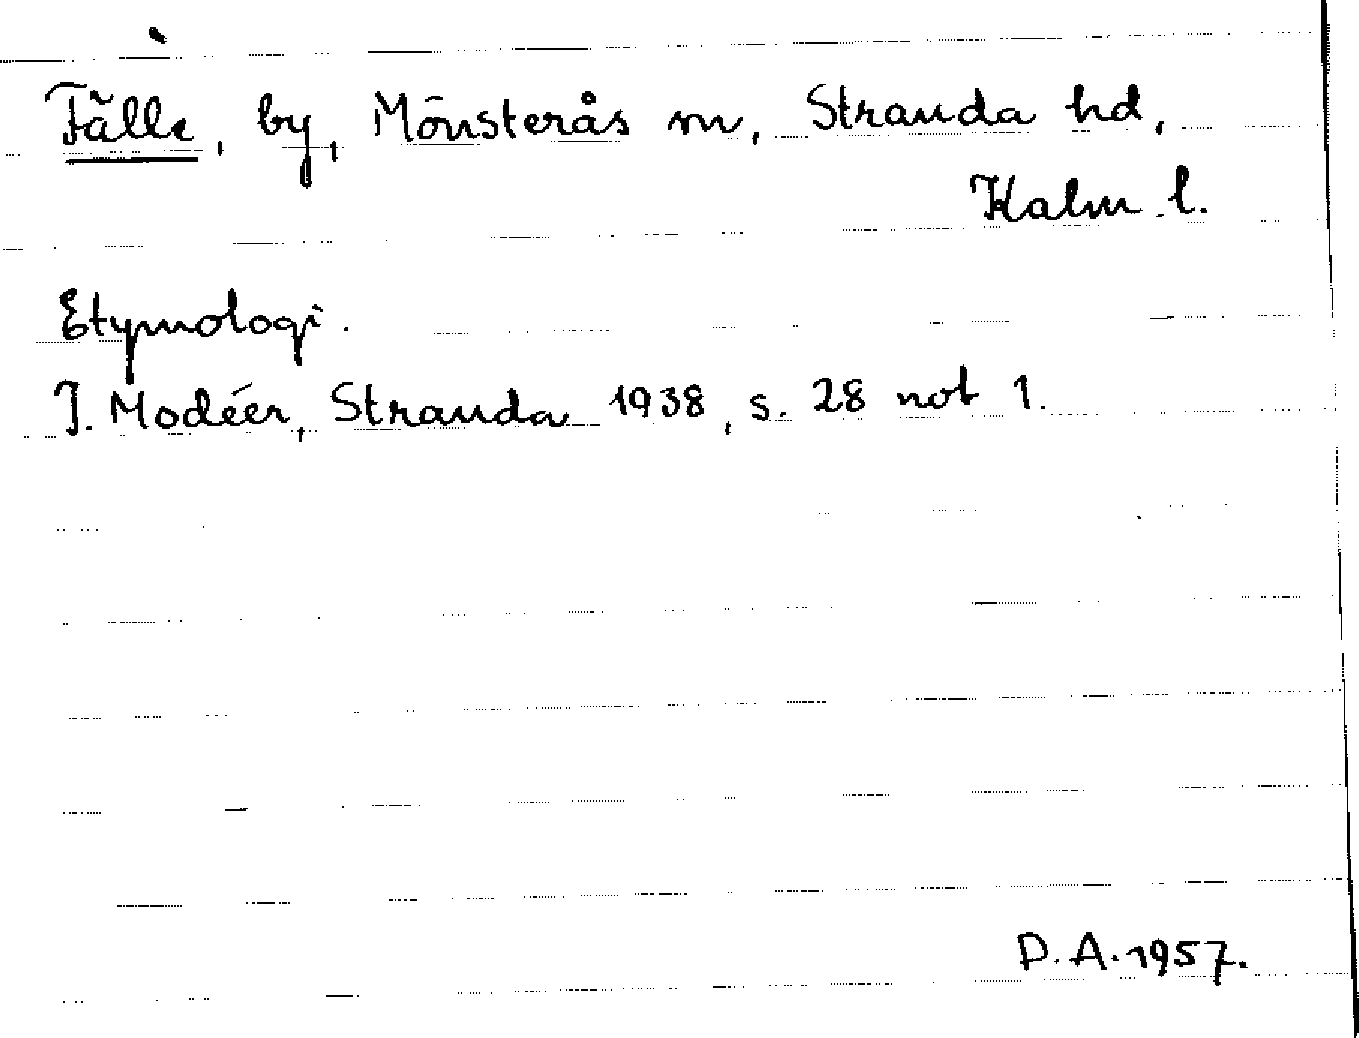 Fälle, by, Mönsterås sn, Stranda hd,
Kalm l.
Etymologi.
I. Modéer, Stranda 1938, s. 28 not 1.
D. A. 1957.